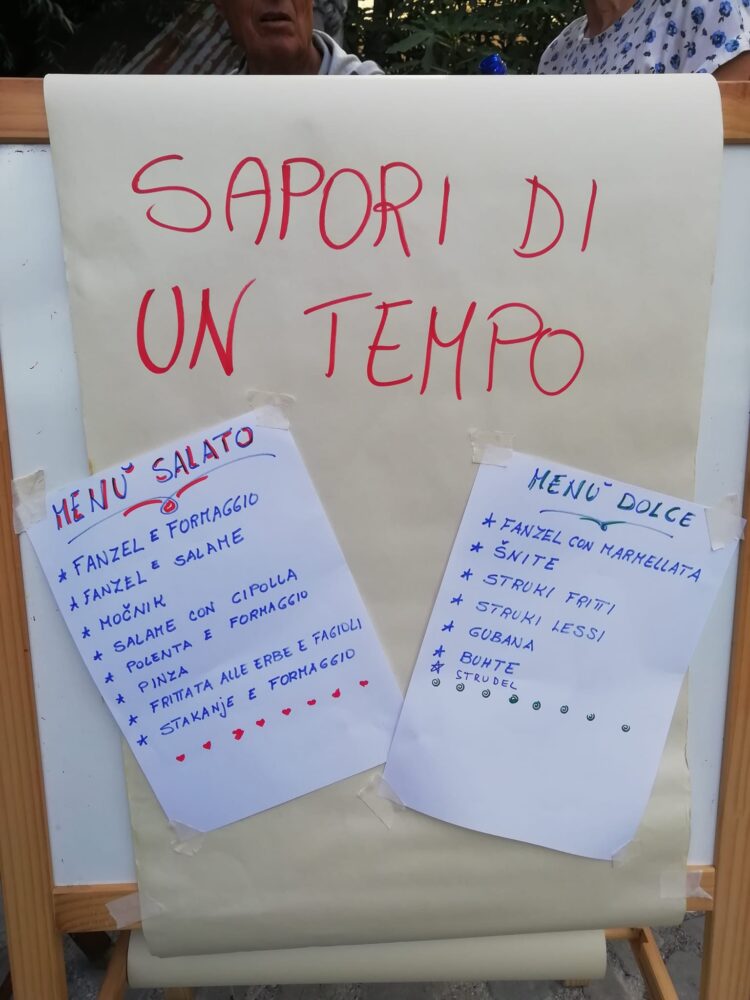 SAPORI DI
UN TEMPO
MENÙ SALATO
* FANZEL E FORMAGGIO
* FANZEL E SALAME
* MOČNIK
* SALAME CON CIPOLLA
* POLENTA E FORMAGGIO
* PINZA
* FRITTATA ALLE ERBE E FAGIOLI
* STAKANJE E FORMAGGIO
MENÙ DOLCE
* FANZEL CON MARMELLATA
* ŠNITE
* STRUKI FRITTI
* STRUKI LESSI
* GUBANA
* BUHTE
* STRUDEL